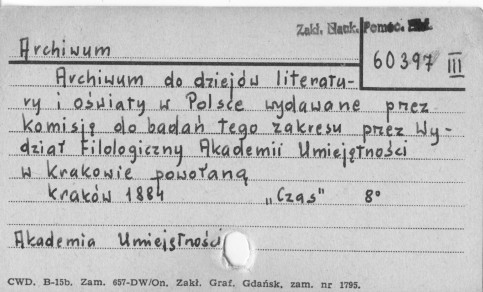 Zakł. Nauk. Pomoc.
Archiwum
60397 III
Archiwum do dziejów literatu-
ry i oświaty w Polsce wydawane przez
komisję do badań tego zakresu przez Wy-
dział Filologiczny Akademii Umiejętności
w Krakowie powołaną
Kraków 1884 „Czas" 8°
Akademia Umiejętności
CWD. B-15b. Zam. 657-DW/On. Zakł. Graf. Gdańsk, zam. nr 1795.